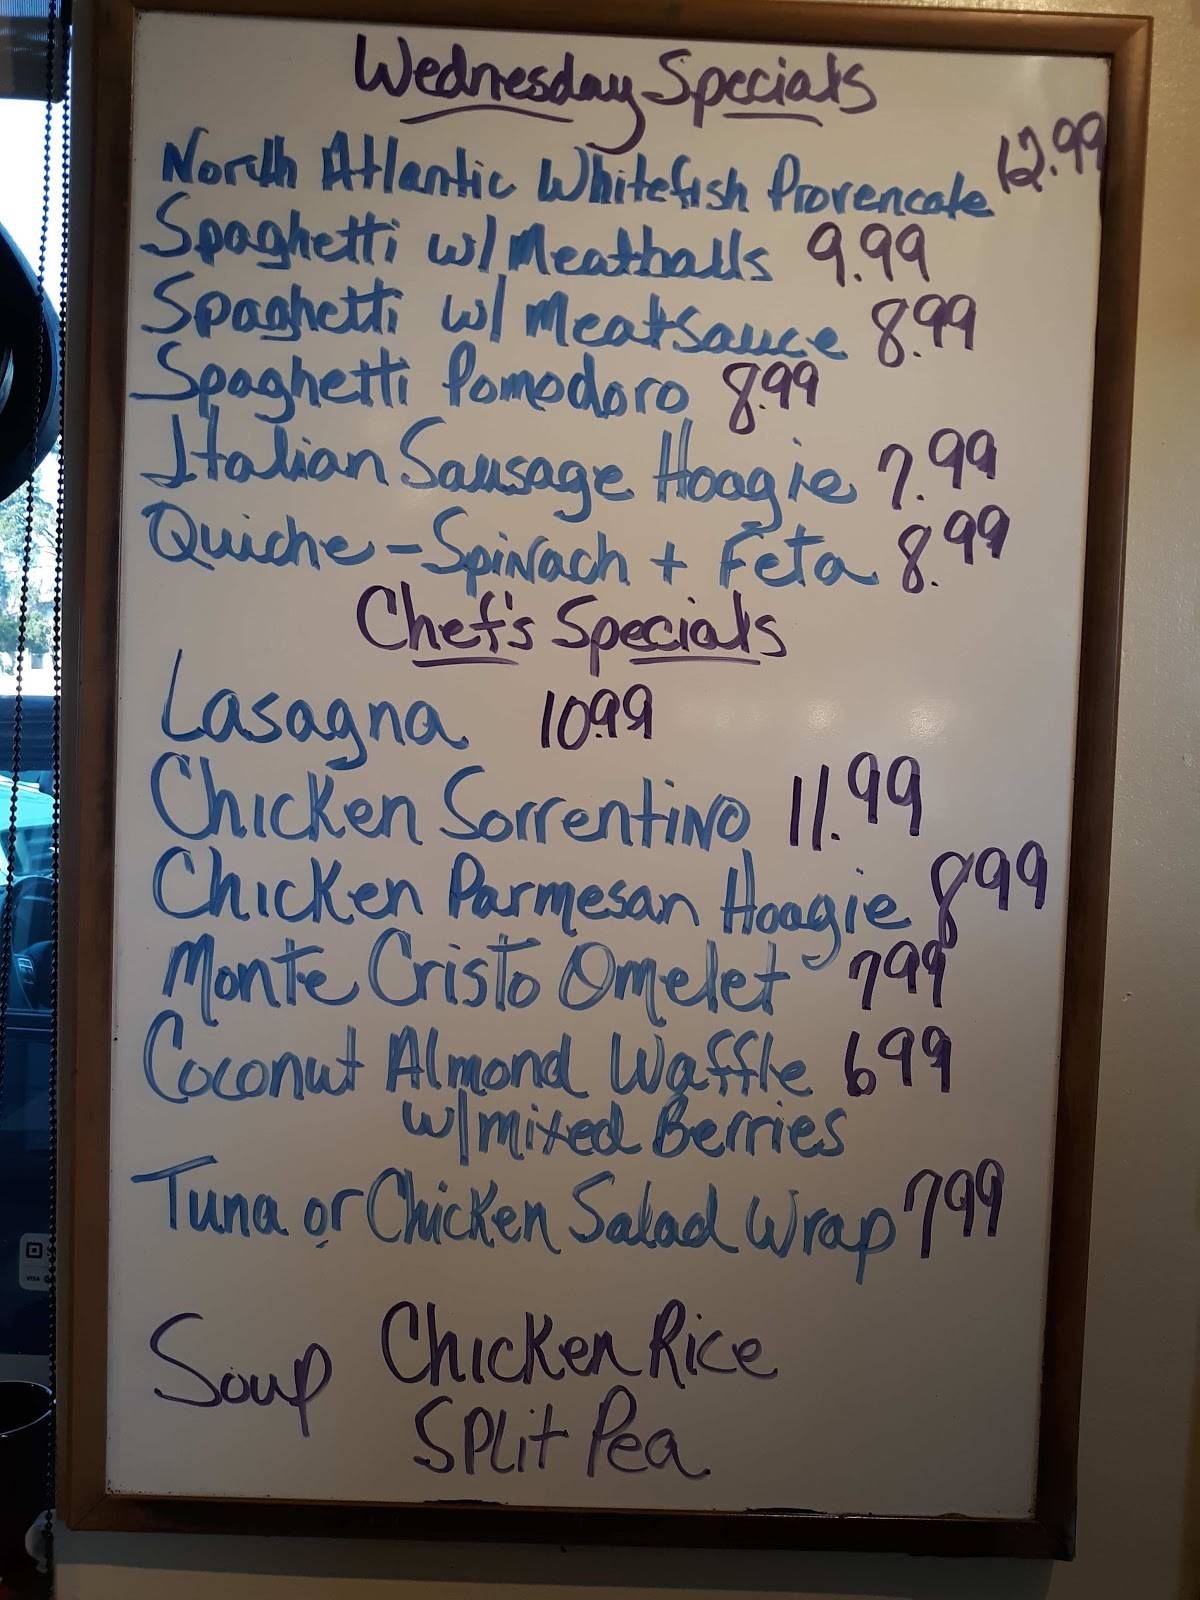 Wednesday Specials
North Atlantic Whitefish Provencale 12.99
Spaghetti w/ Meatballs 9.99
Spaghetti w/ Meatsauce 8.99
Spaghetti Pomodoro 8.99
Italian Sausage Hoagie 7.99
Quiche - Spinach + Feta 8.99
Chef's Specials
Lasagna 10.99
Chicken Sorrentino 11.99
Chicken Parmesan Hoagie 899
Monte Cristo Omelet 799
Coconut Almond Waffle 699
w/ mixed Berries
Tuna or Chicken Salad Wrap 799
Soup Chicken Rice
Split Pea
VISA